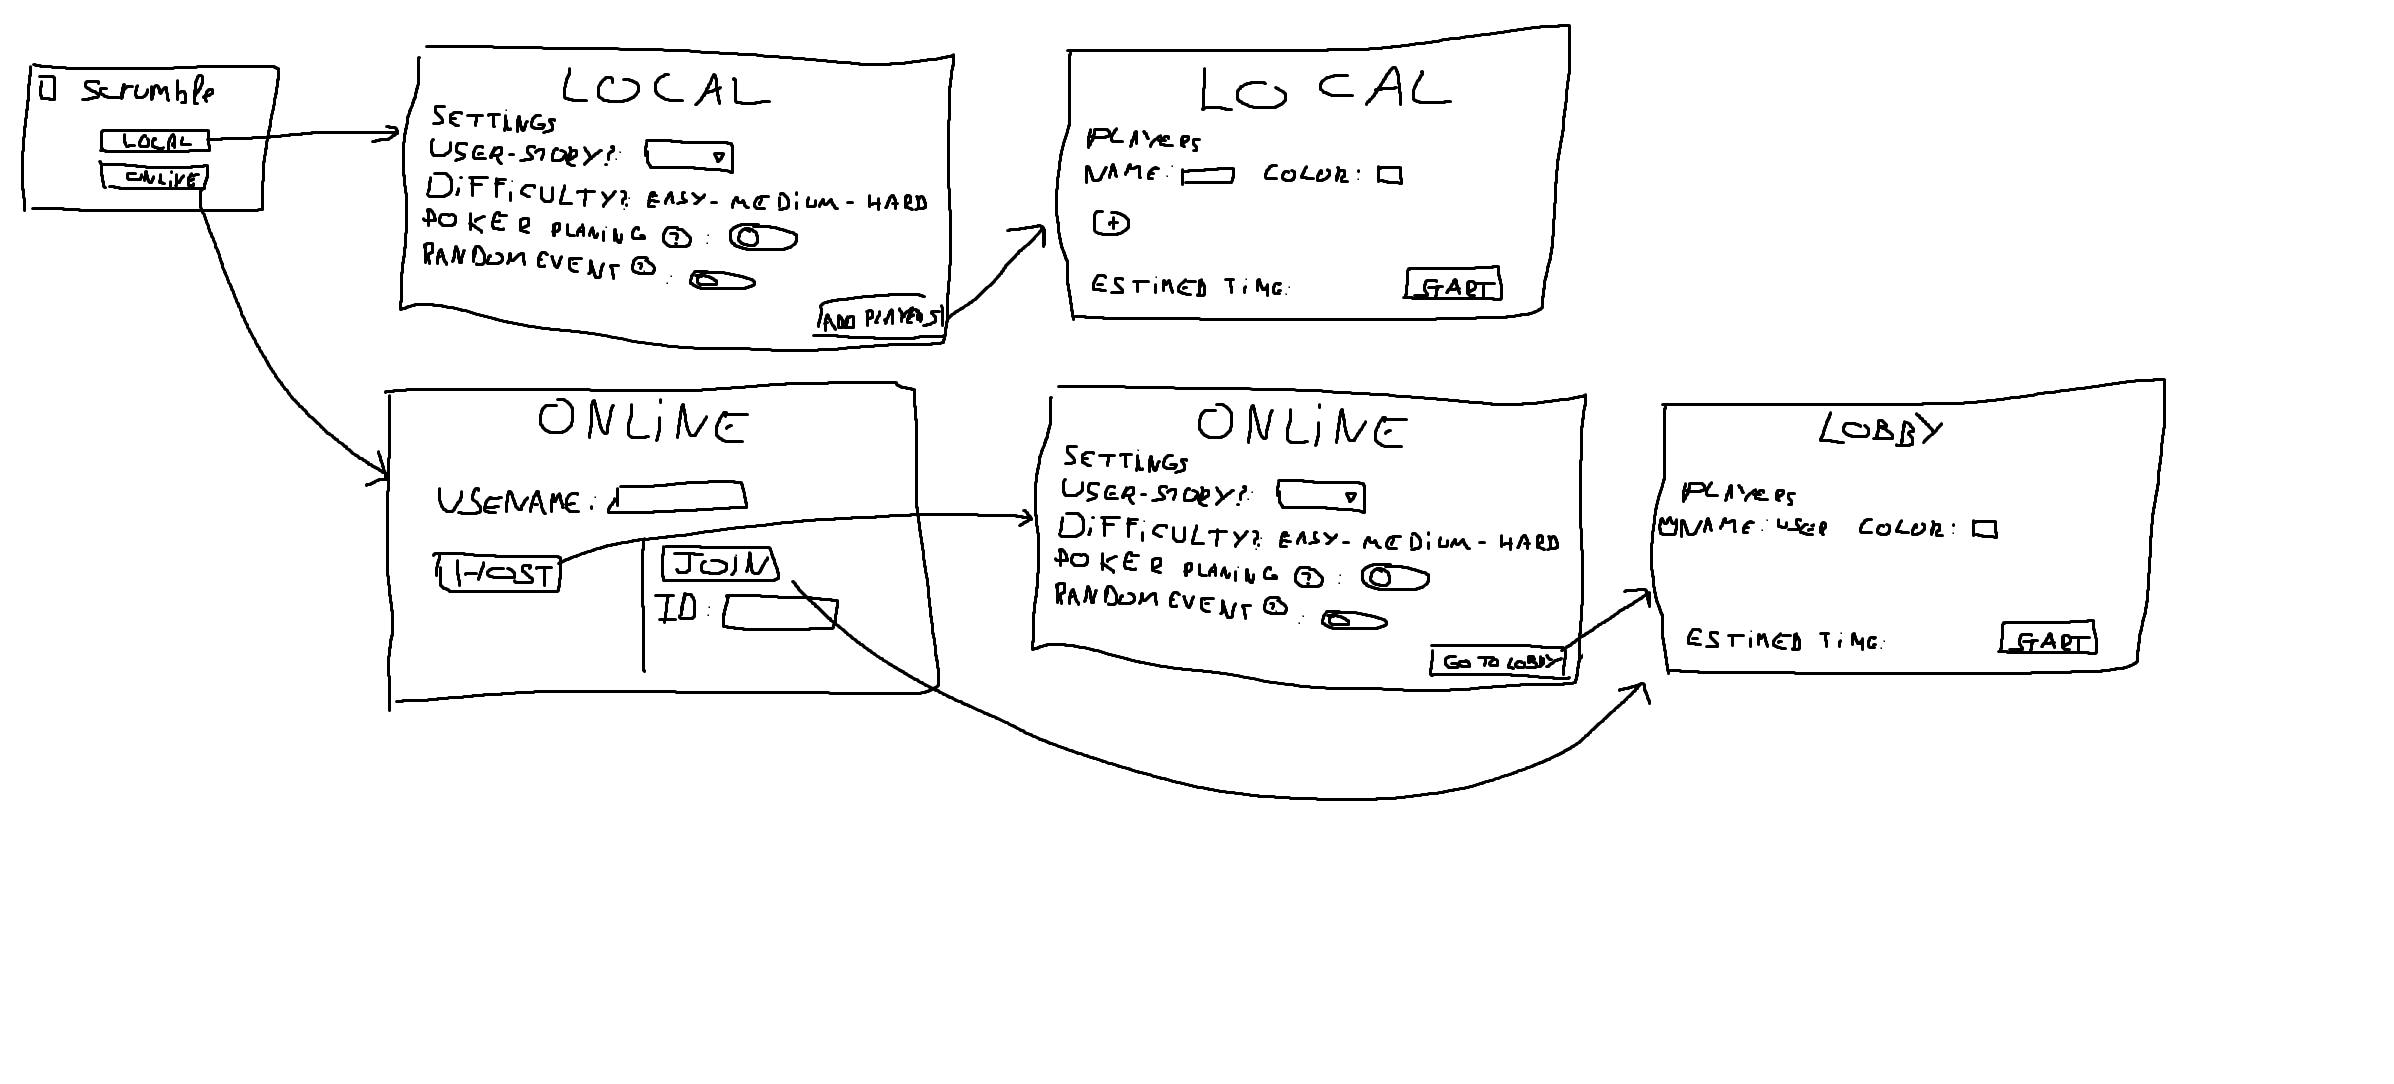 Scrumble
LOCAL
ONLINE
LOCAL
SETTINGS
USER-STORY?:
DIFFICULTY? EASY-MEDIUM-HARD
POKER PLANING ? :
RANDOM EVENT ? :
ADD PLAYERS
LOCAL
PLAYERS
NAME: COLOR:
+
ESTIMED TIME:
START
ONLINE
USENAME:
HOST
JOIN
ID:
ONLINE
SETTINGS
USER-STORY?:
DIFFICULTY? EASY-MEDIUM-HARD
POKER PLANING ? :
RANDOM EVENT ? :
GO TO LOBBY
LOBBY
PLAYERS
NAME: USER COLOR:
ESTIMED TIME:
START